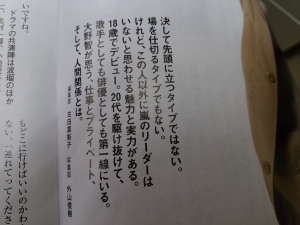 決して先頭に立つタイプではない。
場を仕切るタイプでもない。
けれど、この人以外に嵐のリーダーは
いないと思わせる魅力と実力がある。
18歳でデビュー。20代を駆け抜けて、
歌手としても俳優としても第一線にいる。
大野智が思う、仕事とプライベート、
そして、人間関係とは。
古田真梨子
外山俊樹
いですね。
ドラマの共演陣は波瑠のほか
もどこに行けばいいのかわ
ない。「連れてってくださ